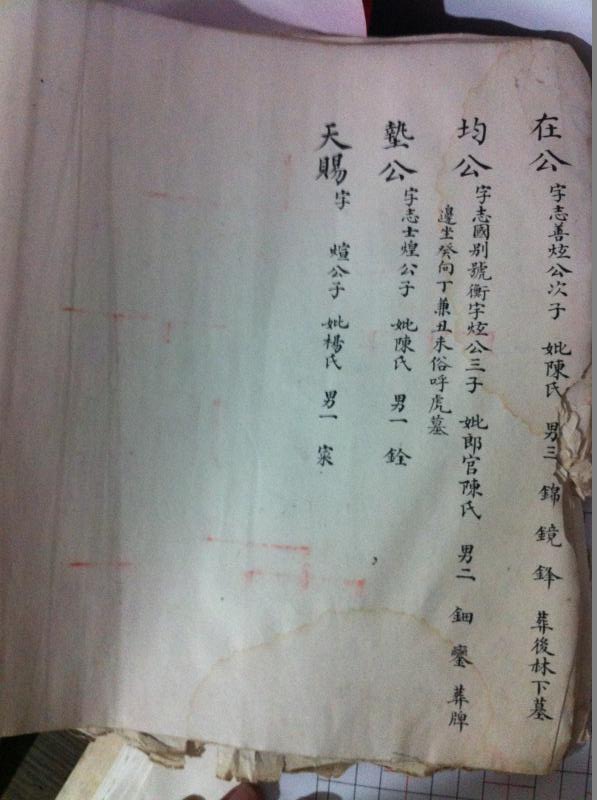 在公 字志善炫公次子 妣陳氏 男三 錦 鏡 鋒 葬後林下墓
均公 字志國別號衡宇炫公三子 妣郎官陳氏 男二 鈿 鑾 葬牌
邊坐癸向丁兼丑未俗呼虎墓
塾公 字志士煌公子 妣陳氏 男一 銓
天賜 字 煊公子 妣楊氏 男一 寀